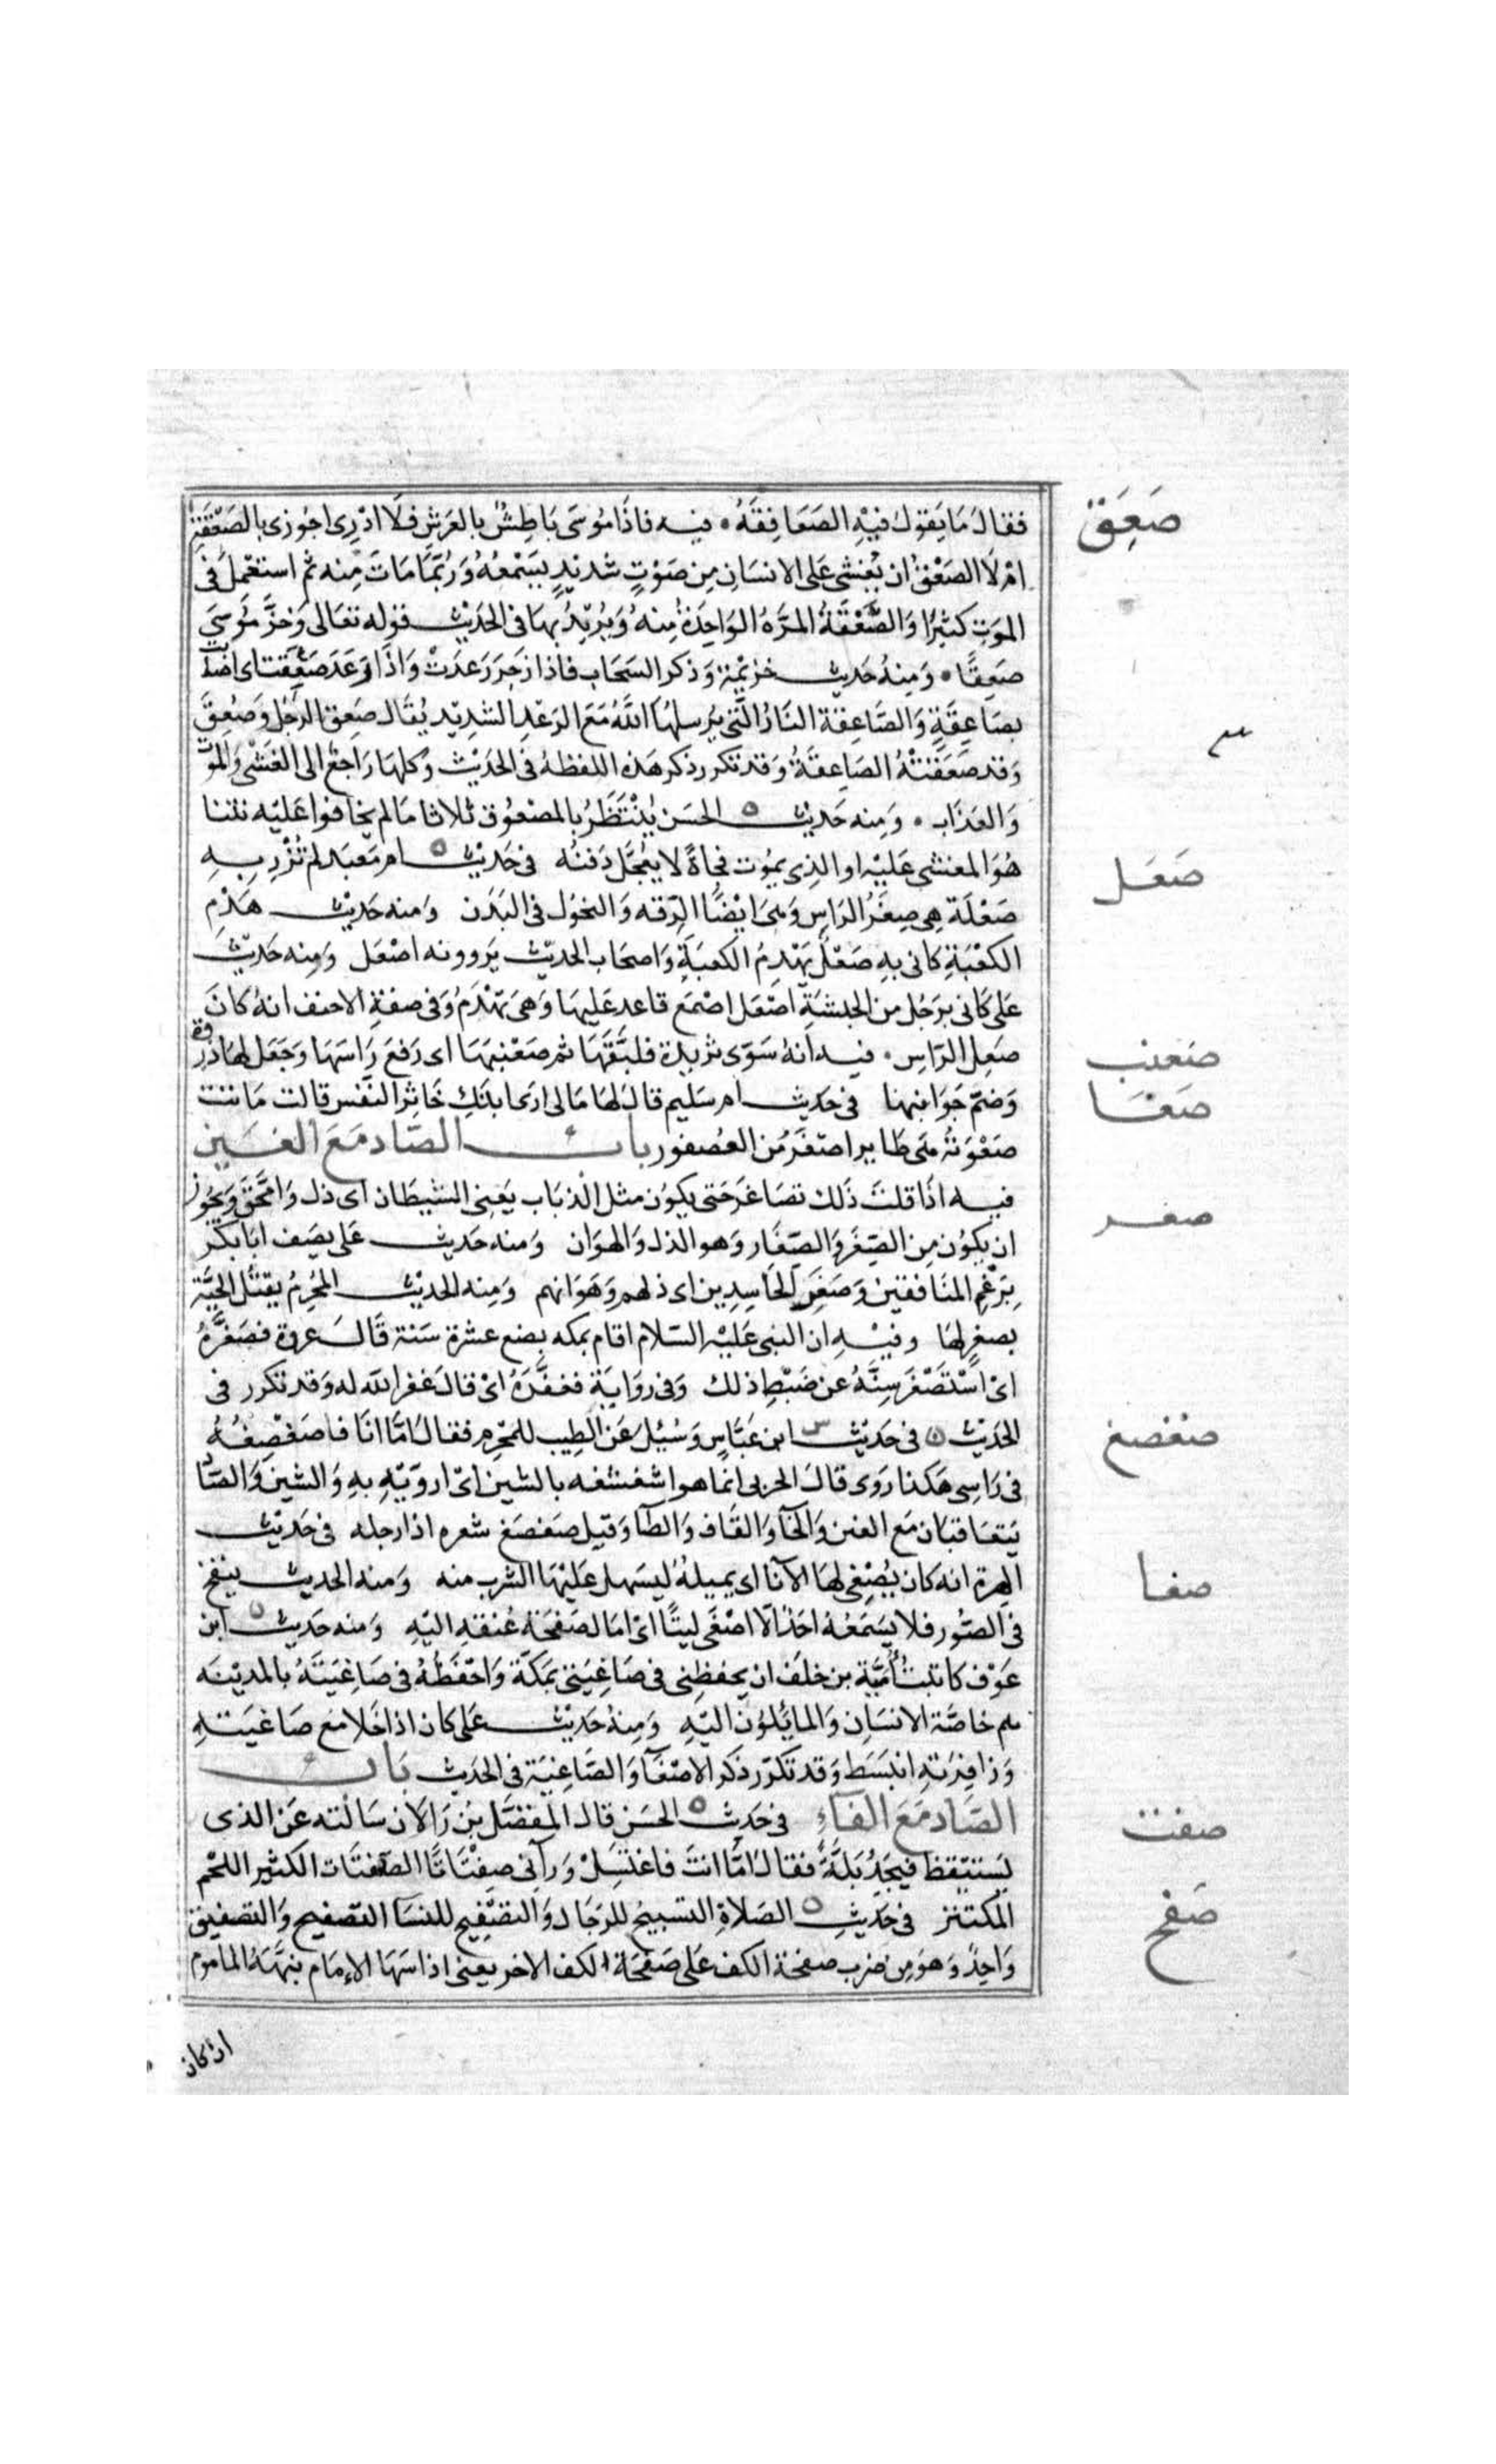 صَعِقَ
فقالَ مَا يَقولُ فيْهِ الصَعَافِقَةُ • فيه فاذَا مُوسَى بَاطِشٌ بالعَرَشِ فلَا ادْرِى اجُوزى بالصَّعْقَةِ
امْ لَا الصَعْقُ ان يُغشى عَلى الانسَانِ مِن صَوْتٍ شدِيْدٍ يسَمْعُهُ وَرُبَّمَا مَاتَ مِنه ثم استعْمِلَ فى
الموَتِ كثيْرًا وَالصَّعْقَةُ المرَّهُ الوَاحِدَةُ مِنهُ وَيُرِيْدُ بهَا فى الحَدَيْث قوله تعَالى وَخرَّ مُوسَى
صَعِقًا • وَمِنهُ حَديث خزيْمة وَذكر السَحَاب فاذا زَجَرَ رَعدَتْ وَاذَا رَعَدَ صَعِقت اى اصَابت
بصَاعِقَةٍ وَالصَّاعِقة النَارُ الَّتى يُرسلهَا اللَّهُ مَعَ الرَعْدِ الشدِيْدِ يُقَال صَعِق الرَجُل وَصُعِقَ
وَقد صَعَقَتْهُ الصَاعِقَةُ وَقد تكرر ذكر هَذه اللفظهُ فى الحَديْث وَكلهَا رَاجِعُ الى الغَشْى وَالموْت
وَالعَذَاب • وَمِنه حَديْث الحَسَن يُنْتَظَرُ بالمصْعُوق ثلاثا مَا لم يخَافوا عَليْه نتنا
صَعَل
هُوَ المغشى عَليْه او الذِى يموُت فجاةً لا يُعَجَّل دَفنُه فى حَديْث ام مَعبَد لم تُزْرِ بِهِ
صَعْلَة هِى صِغَرُ الرَاسِ وَهىَ ايْضًا الدِّقه وَالنحُول فى البَدَن وَمنه حَديْث هَدْمِ
الكعْبَةِ كانى بِهِ صَعْلٌ يَهْدِمُ الكعبَةِ وَاصحَاب الحَديْث يَروونه اصْعَل وَمِنه حَديْث
عَلى كَانى برَجُل من الحبشَةِ اصْعَل اصْمَع قاعد عَليهَا وَهىَ تهْدَمُ وَفى صفةِ الاحنف انهُ كانَ
صعنب
صَعِل الرَاسِ • فيه انهُ سَوّى ثريدة فلبَّقَهَا ثم صَعْنبَهَا اى رَفعَ رَاسَهَا وَجَعَل لهَا ذرْوة
صَعَا
وَضمّ جَوَانبهَا فى حَديث ام سَليم قالَ لهَا مَا لى ارَى ابنَكِ خَاثِرُ النَّفسِ قالت مَاتت
صَعْوَتهُ هىَ طاير اصَغَرُ مُن العُصفور باب الصَّاد مَعَ الغَين
صغر
فيه اذَا قلتَ ذَلك تصَاغرَ حَتى يكوُن مثل الذبَاب يَعنِى الشيطان اى ذل وَامَّحَقَ وَيجُوز
ان يكوُن مِن الصِغَر وَالصَغَار وَهو الذل وَالهوَان وَمنه حَديث عَلى يصَف ابَا بَكْر
بِرَغْمِ المنَافقينَ وَصَغَرِ الحَاسِدِين اى ذلهم وَهَوَانهم وَمِنه الحَديْث المُحْرِمُ يقتُل الحَيَّة
بصغرٍ لهَا وفيْهِ ان النبى عَليْه السَلام اقام بمكه بضع عشرة سَنة قَالَ عروة فصَغَّرَهُ
اىْ اسْتَصْغَرَ سِنَّهُ عن ضَبْطِ ذلك وَفى روَايَةٍ فغفَّرَهُ اىْ قالَ غفر الله له وَقد تكرر فى
صغصغ
الحَديْث فى حَديْث ابن عَبَّاسٍ وَسُئِل عَن الطِيب للمحْرم فقالَ امَّا انَا فاصَغصِغُهُ
فى رَاسِى هَكذا رَوى قالَ الحربى انمَا هو اشغشغه بالشين اىْ اروِّيْه بهِ وَالشين وَالصَّاد
يَتعَاقبَان مَع الغين وَالخَآ وَالقَاف وَالطآ وَقيل صَغصَغ شعره اذا رجله فى حَديْث
صغا
الهرة انه كان يُصْغِى لهَا الآنَا اى يميلهُ ليَسهل عَليْهَا الشرب منه وَمنه الحَديث ينفخ
فى الصُّور فلا يسَمَعُهُ احَدٌ الّا اصْغَى ليتًا اىْ امَال صَفحَة عُنقهِ اليْهِ وَمنه حَديث ابن
عَوْف كاتبتُ اُمَيَّة بن خلَف ان يحفظنى فى صَاغِيَتى بمَكّة وَاحْفظهُ فى صَاغِيَتَهُ بالمدِيْنَه
هم خاصَّة الانسَانِ وَالمايُلوُن اليْهِ وَمِنهُ حَديْث عَلى كان اذا خَلا مَع صَاغيَتهِ
وَزافِرَتهِ انبَسَط وَقد تكرّر ذكر الاصْغَآ وَالصَّاغِيَة فى الحَديث بَاب
صفت
الصَّاد مَعَ الفَآءِ فى حَديث الحَسَن قال المفضَّل بْن رَالَان سَالته عَن الذى
يَستيْقظ فيَجَدُ بَلَّةً فقالَ امَّا انتَ فاغتَسِلْ وَرآنى صِفْتَاتًا الصفتَات الكثير اللحْم
صَفح
المُكتنِز فى حَديثِ الصَلاةِ التسبيحُ للرجَالِ وَالتصْفِيحِ للنسَآ التصفيح وَالتصفيق
وَاحِدٌ وَهوَ مِن ضرَب صفحة الكف عَلى صَفحَة الكف الاخر يعنى اذا سَهَا الإمَام نبَّهَهُ المامُوم
ان كان